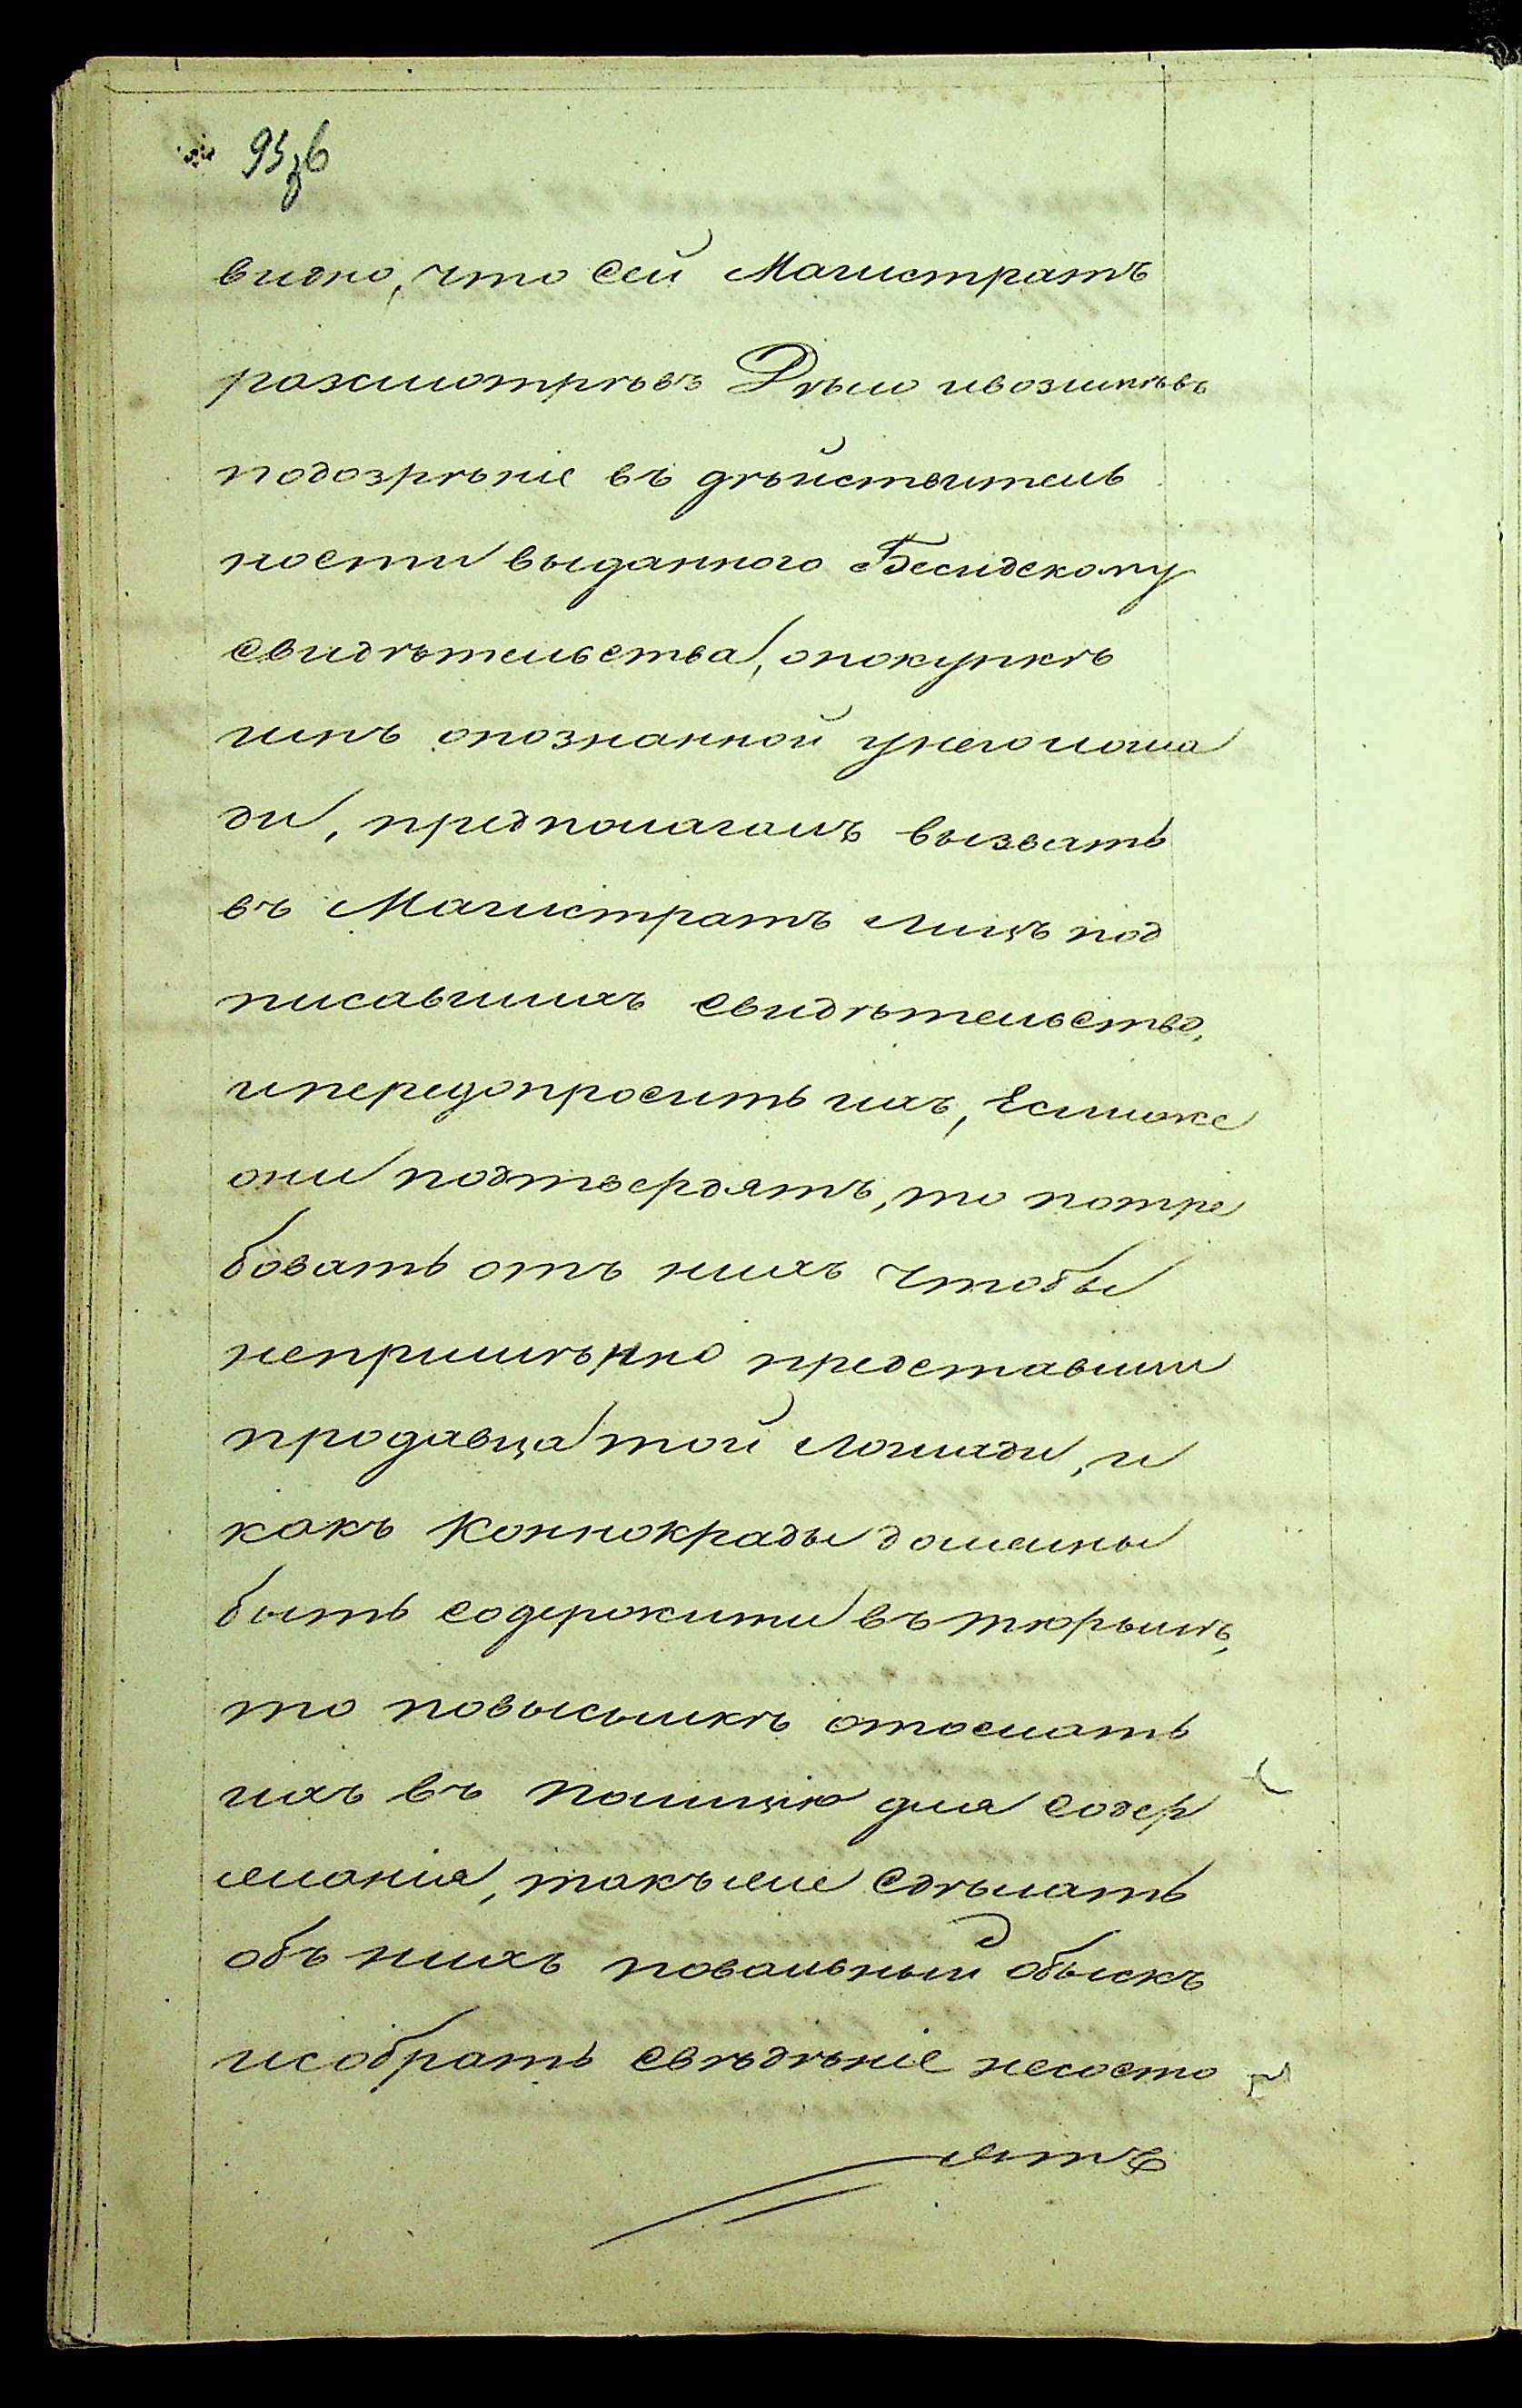 95об
видно, что сей Магистратъ
разсмотрѣвъ Дѣло ивозимѣвъ
подозрѣніе въ дѣйствитель
ности выданного Бесидскому
свидѣтельства, опокупкѣ
имъ опознанной унего лоша
ди, предполагалъ вызвать
въ Магистратъ лицъ под
писавшихъ свидѣтельство,
ипередопросить ихъ, Еслиже
они подтвердятъ, то потре
бовать отъ нихъ чтобы
непримѣнно представили
продавца той лошади, и
какъ Коннокрады должны
быть содержими въ тюрьмѣ,
то повысылкѣ отослать
ихъ въ Полицію для содер
жанія, такъ же Сдѣлать
объ нихъ повальный обыскъ
исобрать свѣдѣніе несосто
ятъ